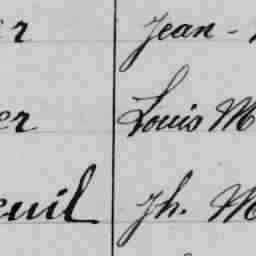 er Jean -
er Louis M
euil Jh. M